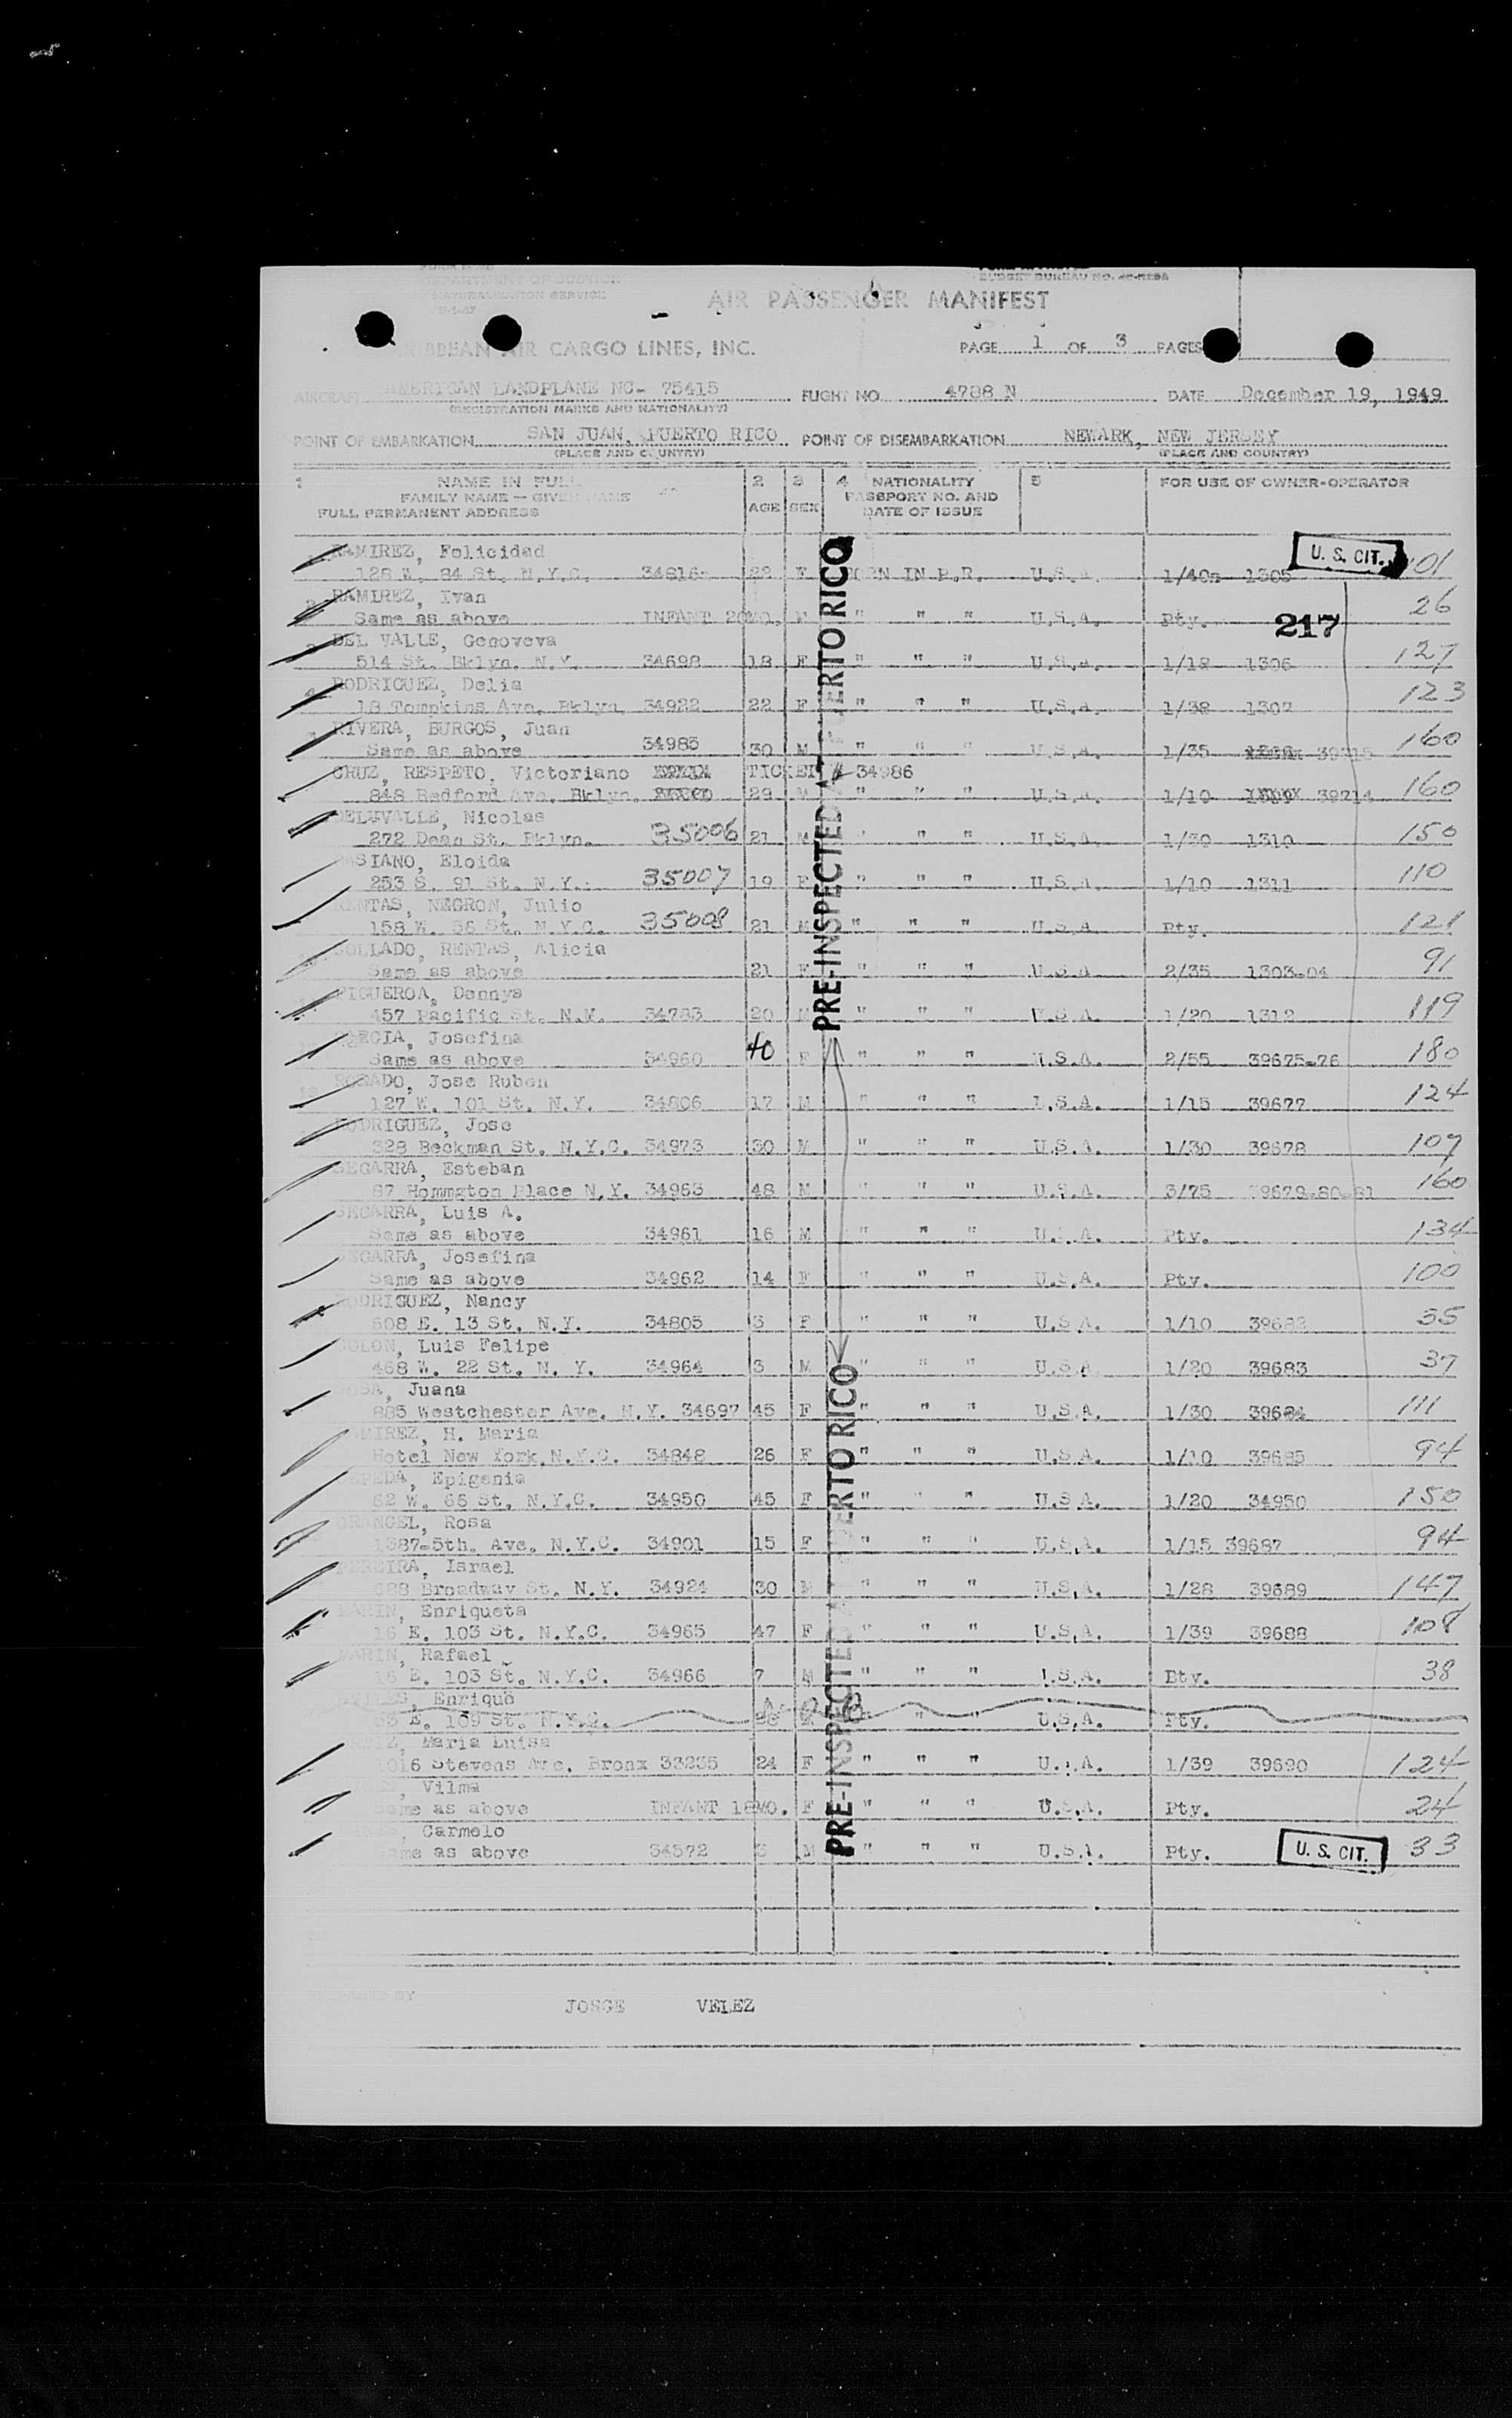 DEPARTMENT OF JUSTICE
NATURALIZATION SERVICE
BUDGET BUREAU NO.
AIR PASSENGER MANIFEST
AIR CARGO LINES, INC.
PAGE 1 OF 3 PAGES
AIRCRAFT AMERICAN LANDPLANE NC- 75415 FLIGHT NO. 4788 N DATE December 19, 1949
(REGISTRATION MARKS AND NATIONALITY)
POINT OF EMBARKATION SAN JUAN, PUERTO RICO POINT OF DISEMBARKATION NEWARK, NEW JERSEY
(PLACE AND COUNTRY) (PLACE AND COUNTRY)
1 NAME IN FULL 2 3 4 NATIONALITY 5 FOR USE OF OWNER-OPERATOR
FAMILY NAME — GIVEN NAME AGE SEX PASSPORT NO. AND
FULL PERMANENT ADDRESS DATE OF ISSUE
PRE-INSPECTED AT PUERTO RICO
RAMIREZ, Felicidad U. S. CIT.
128 W. 84 St. N.Y.C. 34816 22 F BORN IN P.R. U.S.A. 1/40 1305 101
RAMIREZ, Ivan
Same as above INFANT MO. " " " U.S.A. Pty. 217 26
DEL VALLE, Genoveva
514 St. Bklyn. N.Y. 34698 18 F " " " U.S.A. 1/18 1306 127
RODRIGUEZ, Delia
18 Tompkins Ave. Bklyn. 34922 22 F " " " U.S.A. 1/38 1307 123
RIVERA, BURGOS, Juan
Same as above 34985 30 M " " " U.S.A. 1/35 160
CRUZ, RESPETO, Victoriano TICKET # 34986
848 Bedford Ave. Bklyn. 29 M " " " U.S.A. 1/10 39714 160
DELUVALLE, Nicolas
272 Dean St. Bklyn. 35006 21 M " " " U.S.A. 1/30 1310 150
Eloida
253 S. 91 St. N.Y. 35007 19 F " " " U.S.A. 1/10 1311 110
RENTAS, NEGRON, Julio
158 W. 56 St. N.Y.C. 35008 21 M " " " U.S.A. Pty. 121
COLLADO, RENTAS, Alicia
Same as above 21 F " " " U.S.A 2/35 1303-04 91
FIGUEROA, Dennys
457 Pacific St. N.Y. 34783 20 M " " " U.S.A. 1/20 1312 119
GARCIA, Josefina
Same as above 34960 40 F " " " U.S.A. 2/55 39675-76 180
ROSADO, Jose Ruben
127 W. 101 St. N.Y. 34806 17 M " " " U.S.A. 1/15 39677 124
RODRIGUEZ, Jose
328 Beckman St. N.Y.C. 34973 30 M " " " U.S.A. 1/30 39678 107
SEGARRA, Esteban
87 Hommgton Place N.Y. 34963 48 M " " " U.S.A. 3/75 39679-80-81 160
SEGARRA, Luis A.
Same as above 34961 16 M " " " U.S.A. Pty. 134
SEGARRA, Josefina
Same as above 34962 14 F " " " U.S.A. Pty. 100
RODRIGUEZ, Nancy
608 E. 13 St. N.Y. 34805 3 F " " " U.S.A. 1/10 39682 35
COLON, Luis Felipe
468 W. 22 St. N. Y. 34964 3 M " " " U.S.A 1/20 39683 37
SOSA, Juana
885 Westchester Ave. N.Y. 34697 45 F " " " U.S.A. 1/30 39684 111
RAMIREZ, H. Maria
Hotel New York, N.Y.C. 34848 26 F " " " U.S.A. 1/10 39685 94
CEPEDA, Epigenia
62 W. 66 St. N.Y.C. 34950 45 F " " " U.S.A. 1/20 34950 150
ORANGEL, Rosa
1387-5th. Ave. N.Y.C. 34901 15 F " " " U.S.A. 1/15 39687 94
PEREIRA, Israel
688 Broadway St. N.Y. 34924 30 M " " " U.S.A. 1/28 39689 147
MARIN, Enriqueta
16 E. 103 St. N.Y.C. 34965 47 F " " " U.S.A. 1/39 39688 108
MARIN, Rafael
16 E. 103 St. N.Y.C. 34966 7 M " " " U.S.A. Pty. 38
Enrique
63 E. 109 St. N.Y.C. " " U.S.A. Pty.
Maria Luisa
1016 Stevens Ave. Bronx 33235 24 F " " " U.S.A. 1/39 39690 124
Vilma
Same as above INFANT 18MO. F " " " U.S.A. Pty. 24
Carmelo
Same as above 34572 3 M " " " U.S.A. Pty. U. S. CIT. 33
PRE-INSPECTED AT PUERTO RICO
JORGE VELEZ